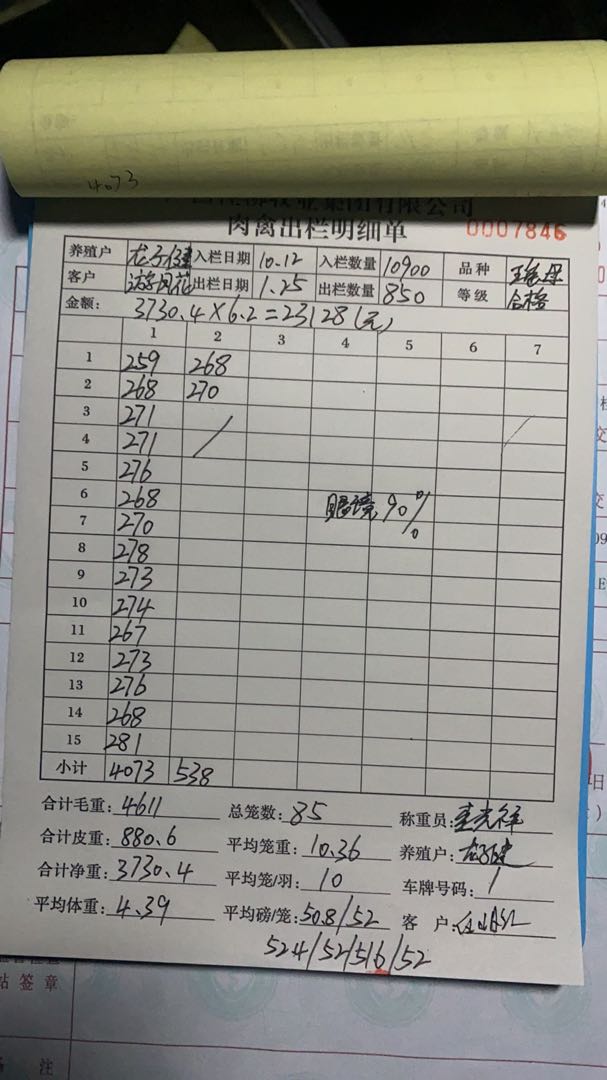 4073
牧业集团有限公司
肉禽出栏明细单 0007846
养殖户 龙子健 入栏日期 10.12 入栏数量 10900 品种
客户 出栏日期 1.25 出栏数量 850 等级 合格
金额: 3730.4×6.2=23128(元)
1 2 3 4 5 6 7
1 259 268
2 268 270
3 271
4 271
5 276
6 268 眼镜90%
7 270
8 278
9 273
10 274
11 267
12 273
13 276
14 268
15 281
小计 4073 538
合计毛重: 4611 总笼数: 85 称重员:
合计皮重: 880.6 平均笼重: 10.36 养殖户: 龙子健
合计净重: 3730.4 平均笼/羽: 10 车牌号码: 1
平均体重: 4.39 平均磅/笼: 50.8/52 客 户:
52.4/52/51.6/52
站 签 章
备 注